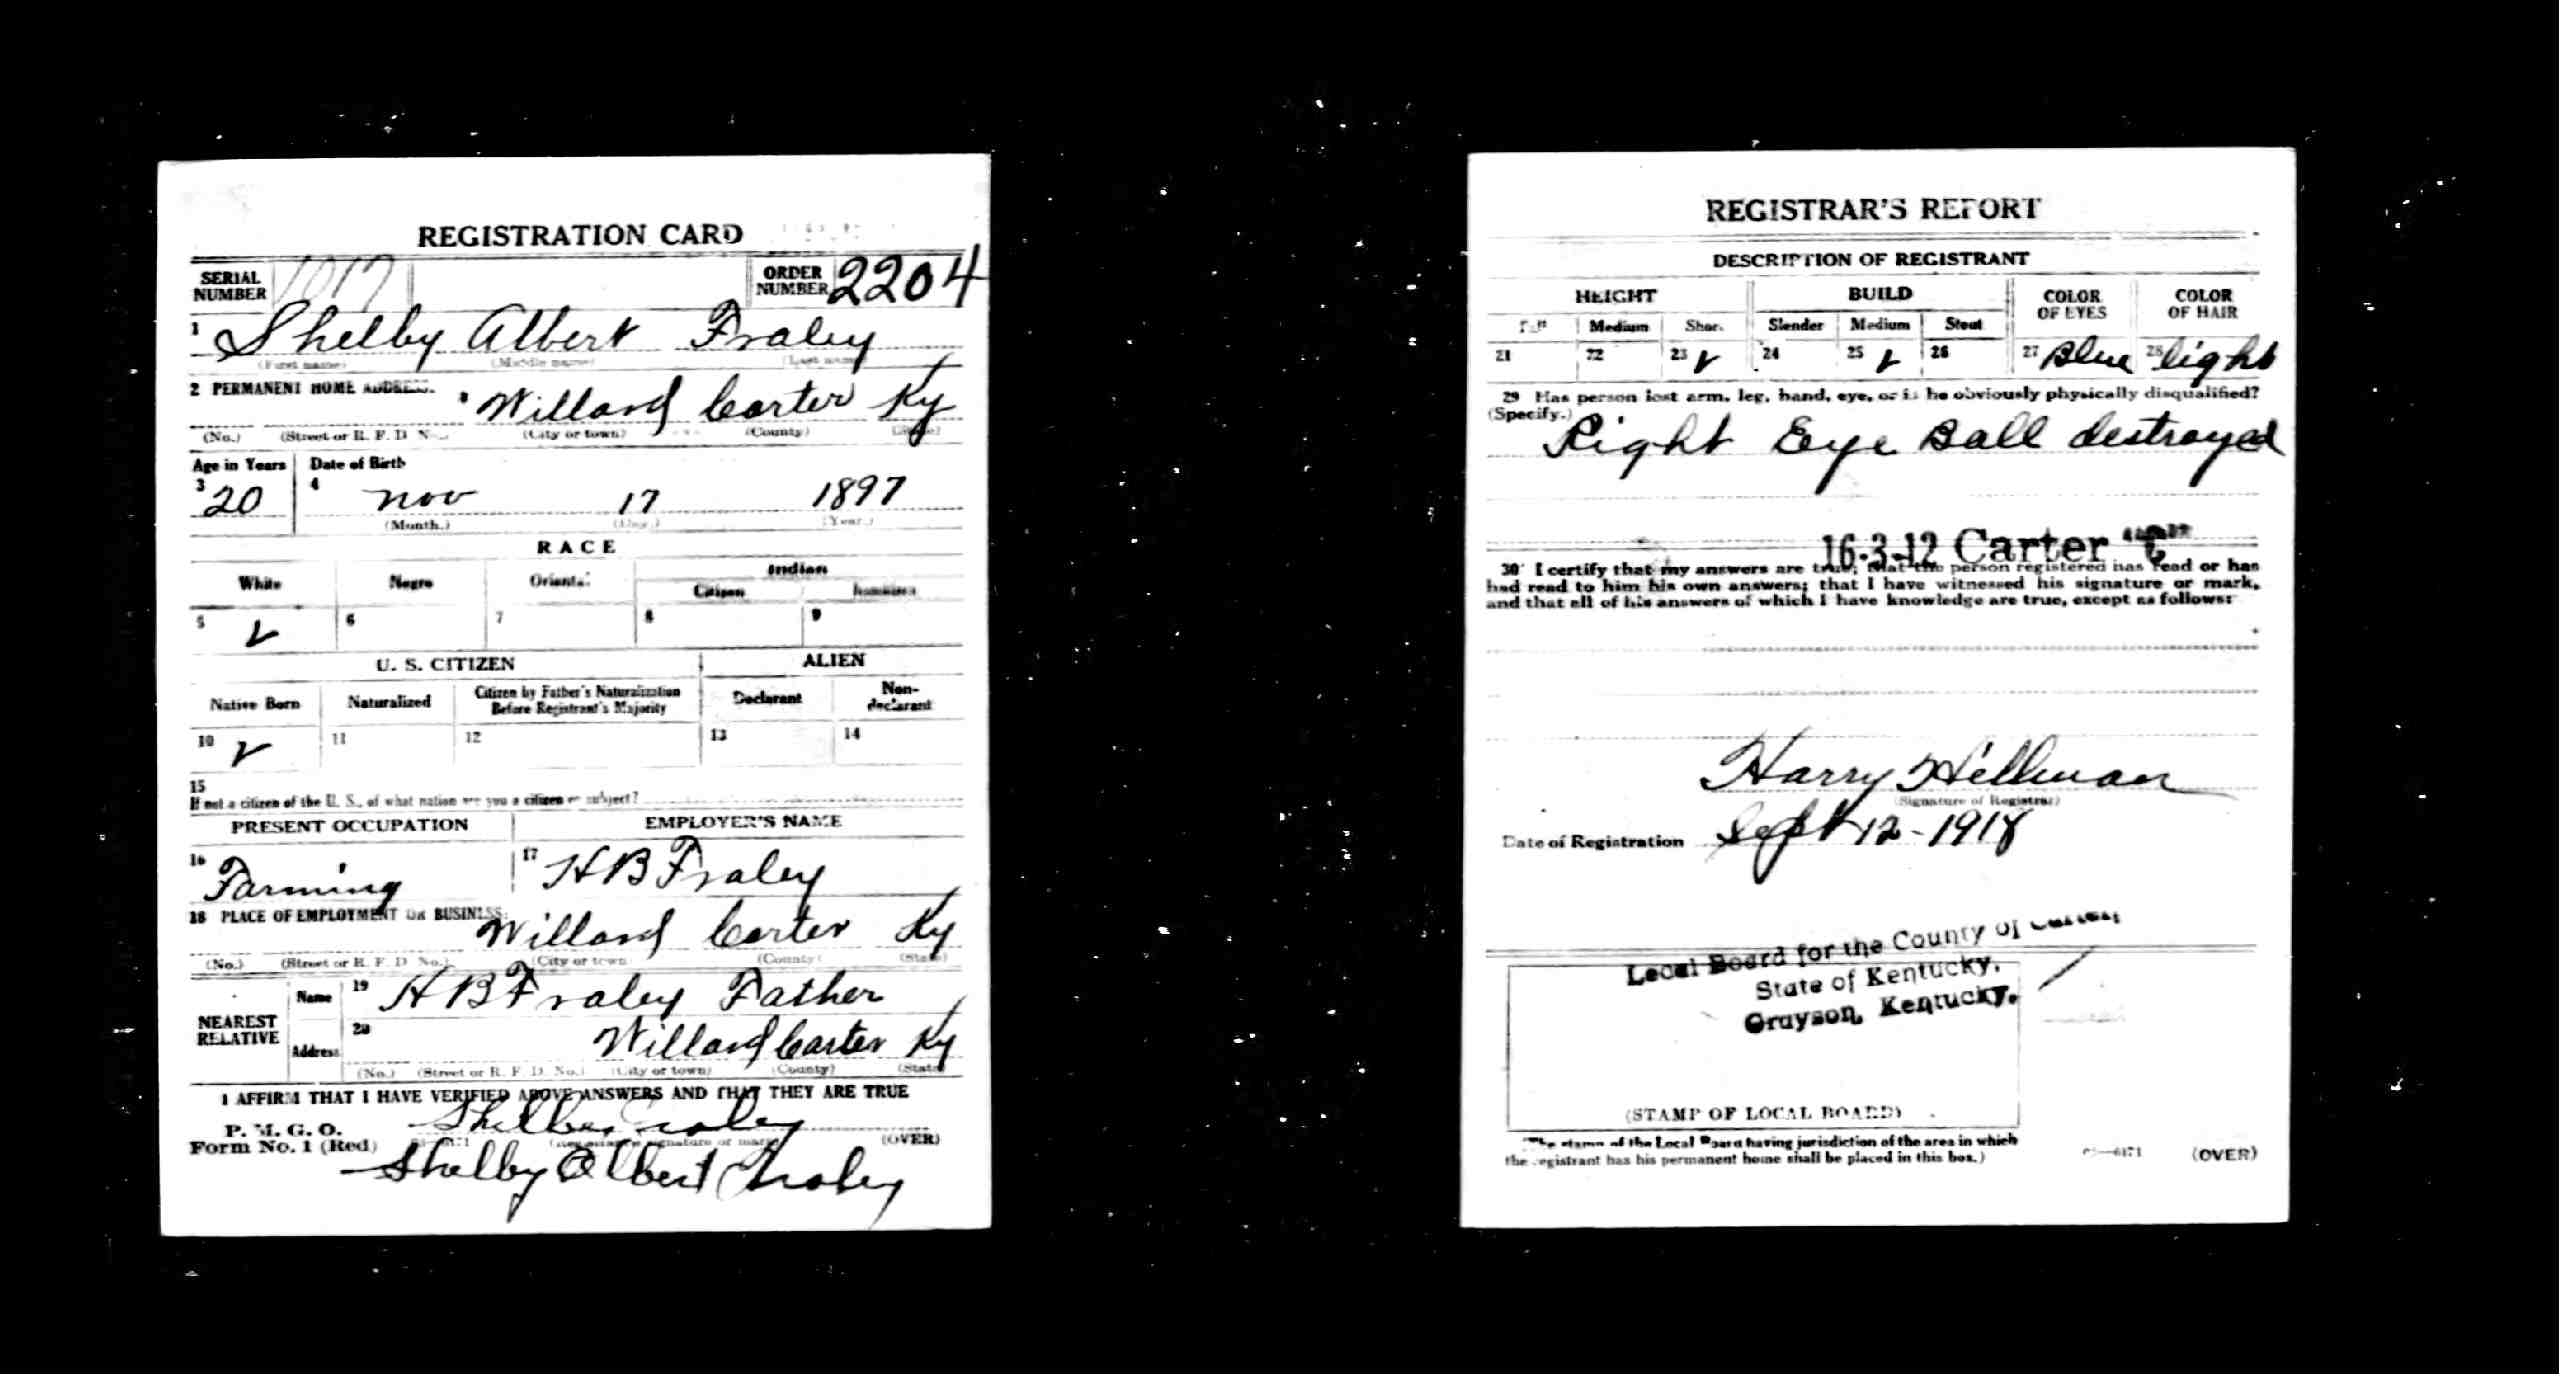 REGISTRATION CARD
SERIAL NUMBER 1017 ORDER NUMBER 2204
1 Shelby Albert Fraley
(First name) (Middle name) (Last name)
2 PERMANENT HOME ADDRESS:
Willard Carter Ky
(No.) (Street or R. F. D. No.) (City or town) (County) (State)
Age in Years Date of Birth
3 20 4 Nov 17 1897
(Month.) (Day.) (Year.)
RACE
White Negro Oriental Indian
Citizen
5 ✓ 6 7 8 9
U. S. CITIZEN ALIEN
Native Born Naturalized Citizen by Father's Naturalization Before Registrant's Majority Declarant Non-declarant
10 ✓ 11 12 13 14
15
If not a citizen of the U. S., of what nation are you a citizen or subject?
PRESENT OCCUPATION EMPLOYER'S NAME
16 Farming 17 H B Fraley
18 PLACE OF EMPLOYMENT OR BUSINESS:
Willard Carter Ky
(No.) (Street or R. F. D. No.) (City or town) (County) (State)
NEAREST RELATIVE
Name 19 H B Fraley Father
Address 20 Willard Carter Ky
(No.) (Street or R. F. D. No.) (City or town) (County) (State)
I AFFIRM THAT I HAVE VERIFIED ABOVE ANSWERS AND THAT THEY ARE TRUE
P. M. G. O.
Form No. 1 (Red)
Shelby Fraley
(Registrant's signature or mark) (OVER)
Shelby Albert Fraley
REGISTRAR'S REPORT
DESCRIPTION OF REGISTRANT
HEIGHT BUILD COLOR OF EYES COLOR OF HAIR
Tall Medium Short Slender Medium Stout
21 22 23 ✓ 24 25 ✓ 26 27 Blue 28 light
29 Has person lost arm, leg, hand, eye, or is he obviously physically disqualified?
(Specify.)
Right Eye Ball destroyed
16-3-12 Carter
30 I certify that my answers are true; that the person registered has read or has
had read to him his own answers; that I have witnessed his signature or mark,
and that all of his answers of which I have knowledge are true, except as follows:
Harry Hillman
(Signature of Registrar)
Date of Registration Sept 12-1918
Local Board for the County of Carter,
State of Kentucky,
Grayson, Kentucky.
(STAMP OF LOCAL BOARD)
(The stamp of the Local Board having jurisdiction of the area in which
the registrant has his permanent home shall be placed in this box.)
(OVER)